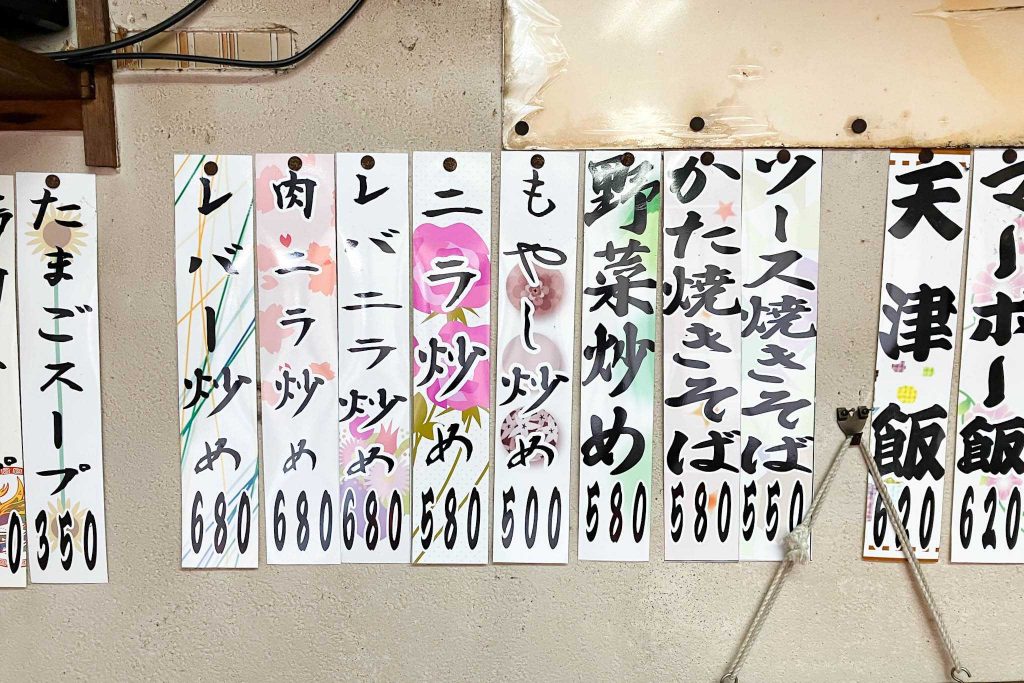 マーボー飯
620
天津飯
620
ソース焼きそば
550
かた焼きそば
580
野菜炒め
580
もやし炒め
500
ニラ炒め
580
レバニラ炒め
680
肉ニラ炒め
680
レバー炒め
680
たまごスープ
350